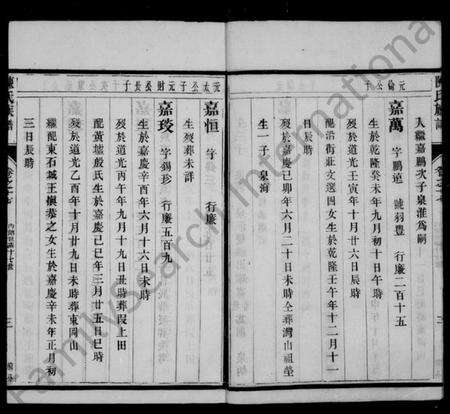 元倫公子
入繼嘉鵬次子泉淮爲嗣
嘉萬 字鵬 號羽豐 行廉二百十五
生於乾隆癸未年九月初十日辰時
歿於道光壬寅年十月十六日辰時
配沿街莊文選四女生於乾隆壬午年十二月十一
日辰時
歿於嘉慶己卯年六月二十日未時全葬灣山祖塋
生一子 泉海
嘉恒 字 行廉
生歿葬未詳
嘉珓 字錫珍 行廉五百九
生於嘉慶辛酉年六月十六日未時
歿於道光丙午年九月十九日丑時葬葭上田
配黃墩殷氏生於嘉慶己巳年三月廿五日巳時
歿於道光乙酉年十月廿九日未時葬東岡山
繼配東石城王懷恭之女生於嘉慶辛未年正月初
三日辰時
陳氏族譜
FamilySearch International